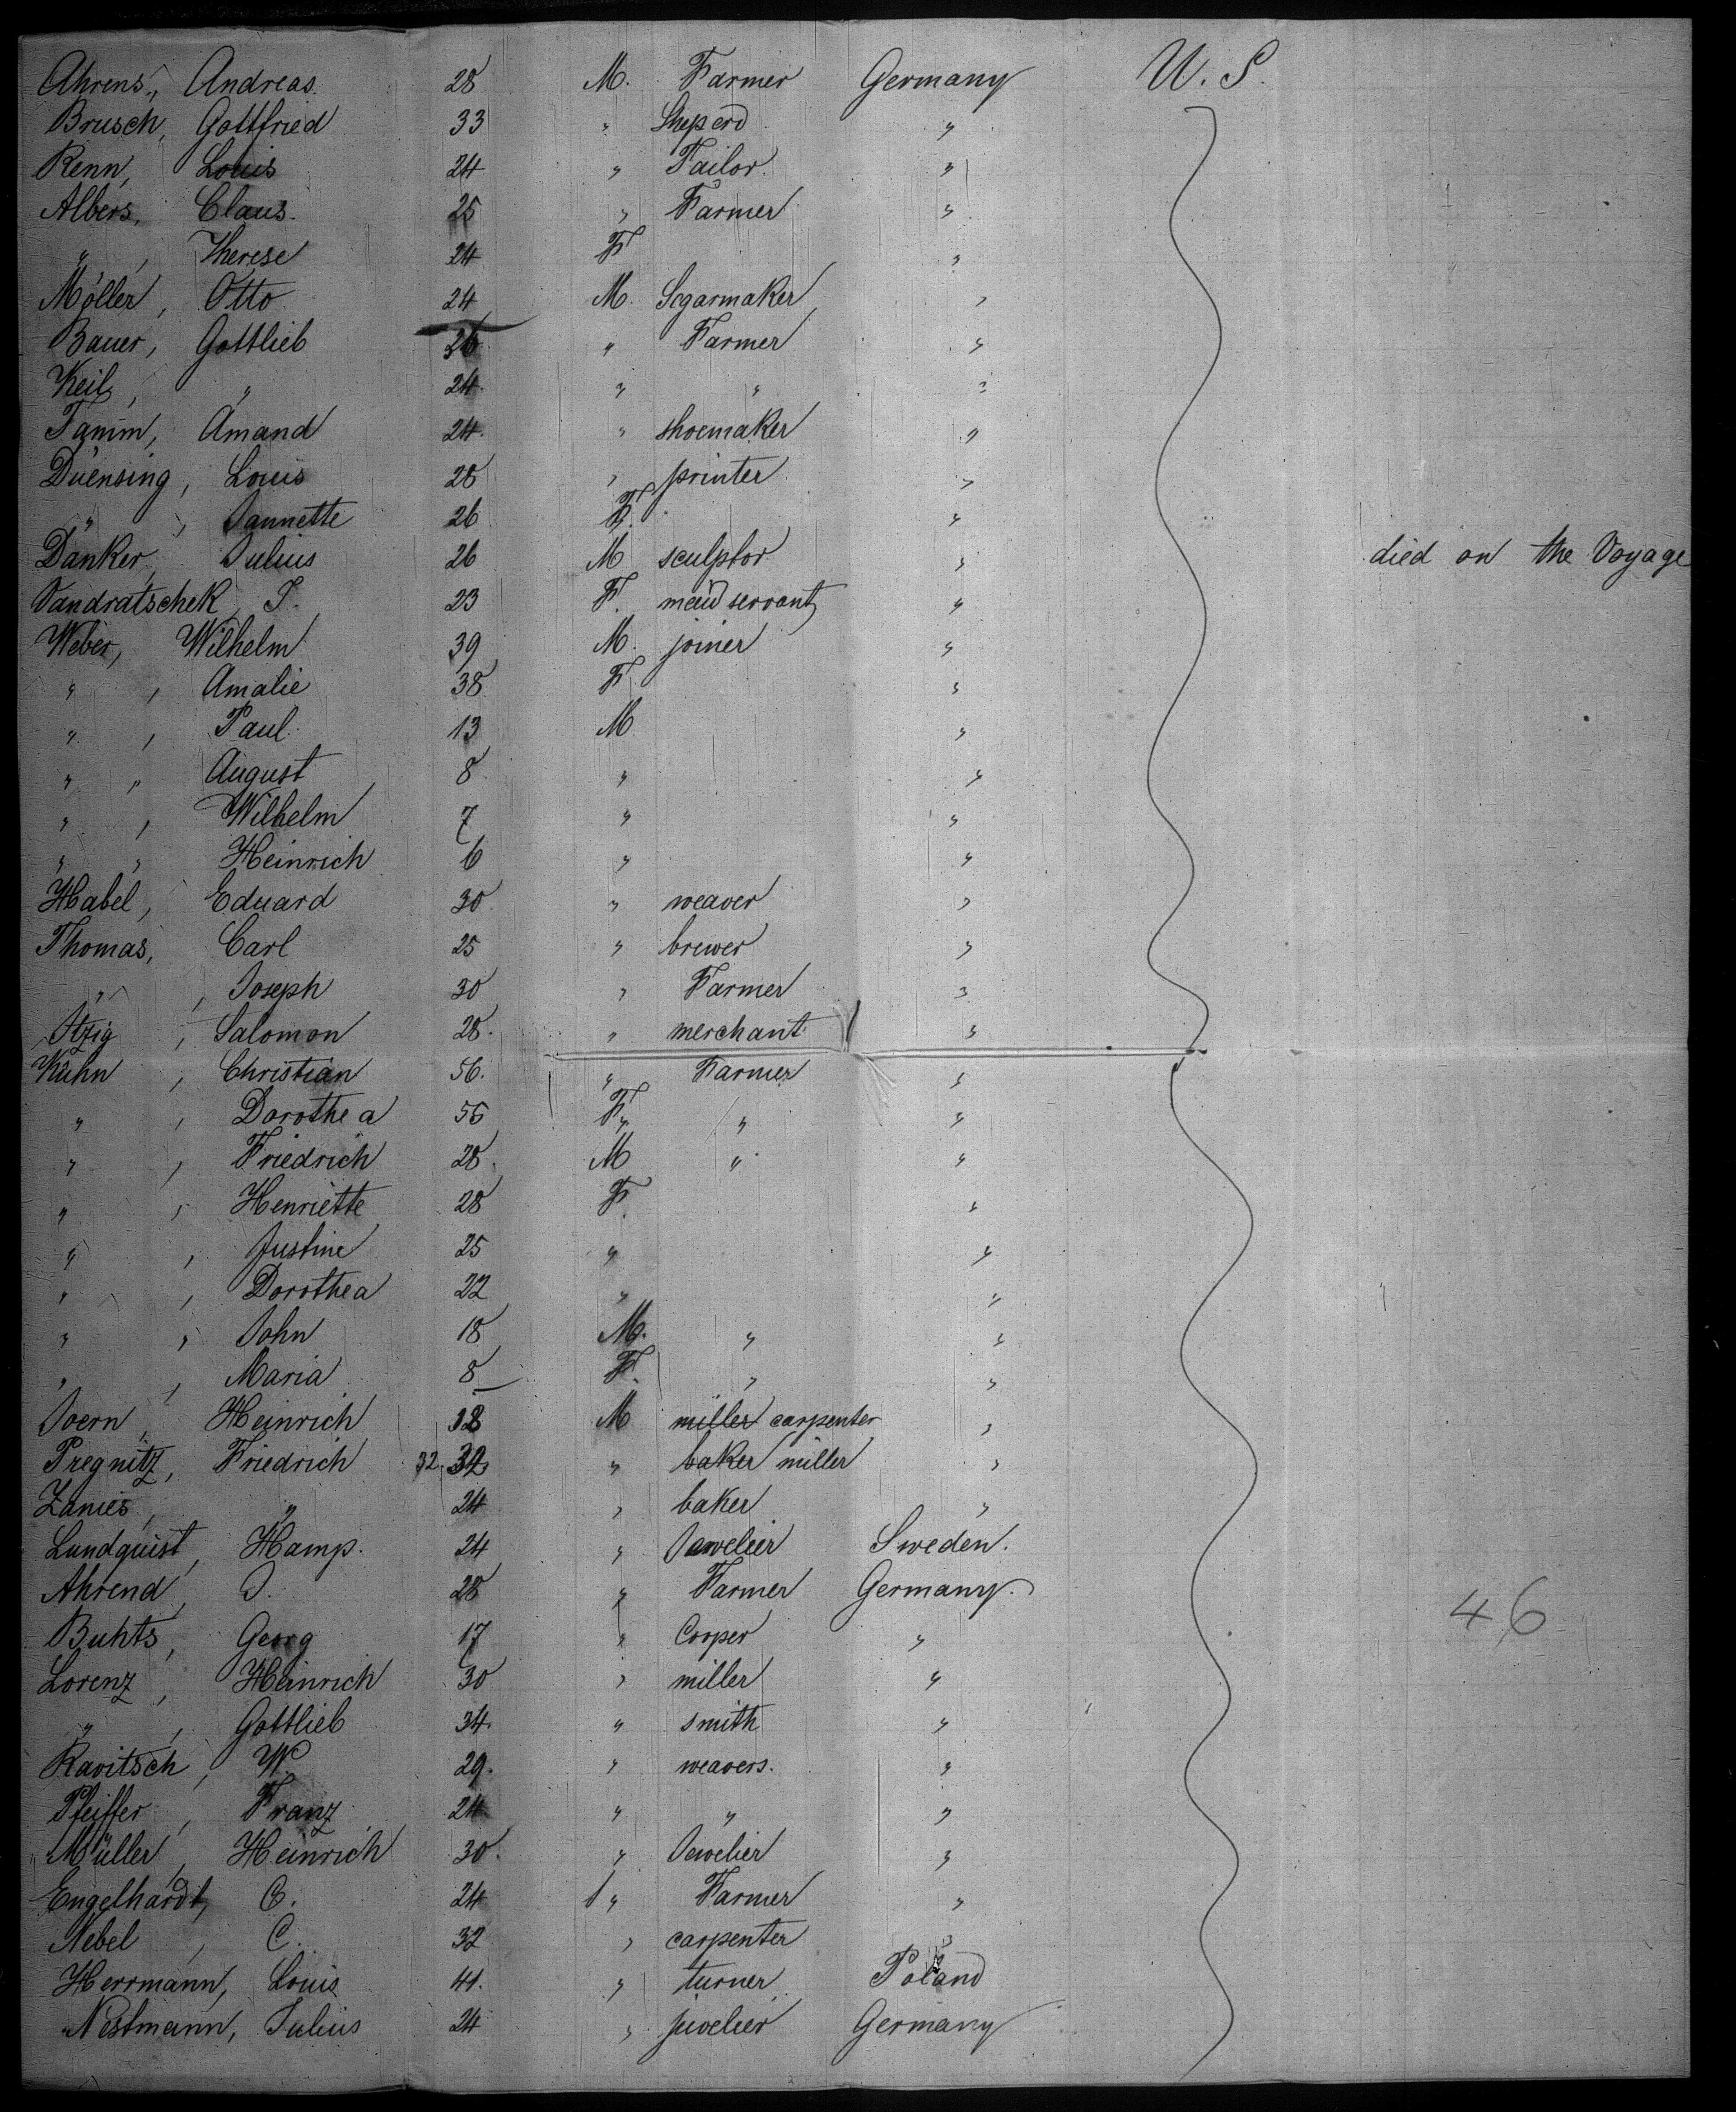 Ahrens, Andreas. 28 M. Farmer Germany U. S.
Brusch, Gottfried 33 " Sheperd "
Renn, Louis 24 " Tailor. "
Albers, Claus. 25 " Farmer "
" , Therese 24 F "
Möller, Otto 24 M. Segarmaker "
Bauer, Gottlieb 26 " Farmer "
Keil, " 24. " " "
Tamm, Amand 24. " shoemaker "
Duensing, Louis 28 " printer "
" , Jannette 26 F. "
Danker, Julius 26 M sculptor " died on the Voyage
Vandratschek, J. 23 F. maid servant "
Weber, Wilhelm 39 M. joiner "
" , Amalie 38 F. "
" , Paul 13 M "
" , August 8 " "
" , Wilhelm 7 " "
" " Heinrich 6 " "
Habel, Eduard 30 " weaver "
Thomas, Carl 25 " brewer "
" , Joseph 30 " Farmer "
Itzig, Salomon 28. " merchant "
Kühn, Christian 56. " Farmer "
" , Dorothea 56 F. " "
" , Friedrich 28. M " "
" , Henriette 28 F. "
" , Justine 25 " "
" , Dorothea 22 " "
" , John 18 M. " "
" , Maria 8 F. " "
Joern, Heinrich 18 M miller carpenter "
Pregnitz, Friedrich 32. 32 " baker miller "
Zanies, " 24 " baker "
Lundquist, Hamp. 24 " Jawelier Sweden.
Ahrend, J. 28 " Farmer Germany.
Buhts, Georg 17 " Cooper " 46
Lorenz, Heinrich 30 " miller "
" , Gottlieb 34. " smith "
Ravitsch, W. 29. " weavers. "
Pfeiffer, Franz 24 " " "
Müller, Heinrich 30. " Jewelier "
Engelhardt, C. 24 " Farmer "
Nebel, C. 32 " carpenter "
Herrmann, Louis 41. " turner Poland
Nestmann, Julius 24 " juvelier Germany